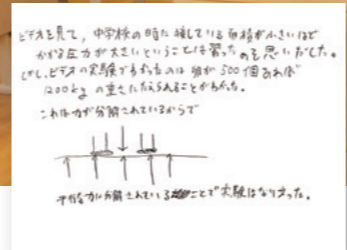 ビデオを見て，中学校の時に接している面積が小さいほど
かかる圧力が大きいということは習ったのを思いだした。
しかし，ビデオの実験でわかったのは 卵が500個あれば
1200kgの重さにたえられることがわかった。
これは力が分解されているからで
十分な力に分解されていることで実験はなり立った。